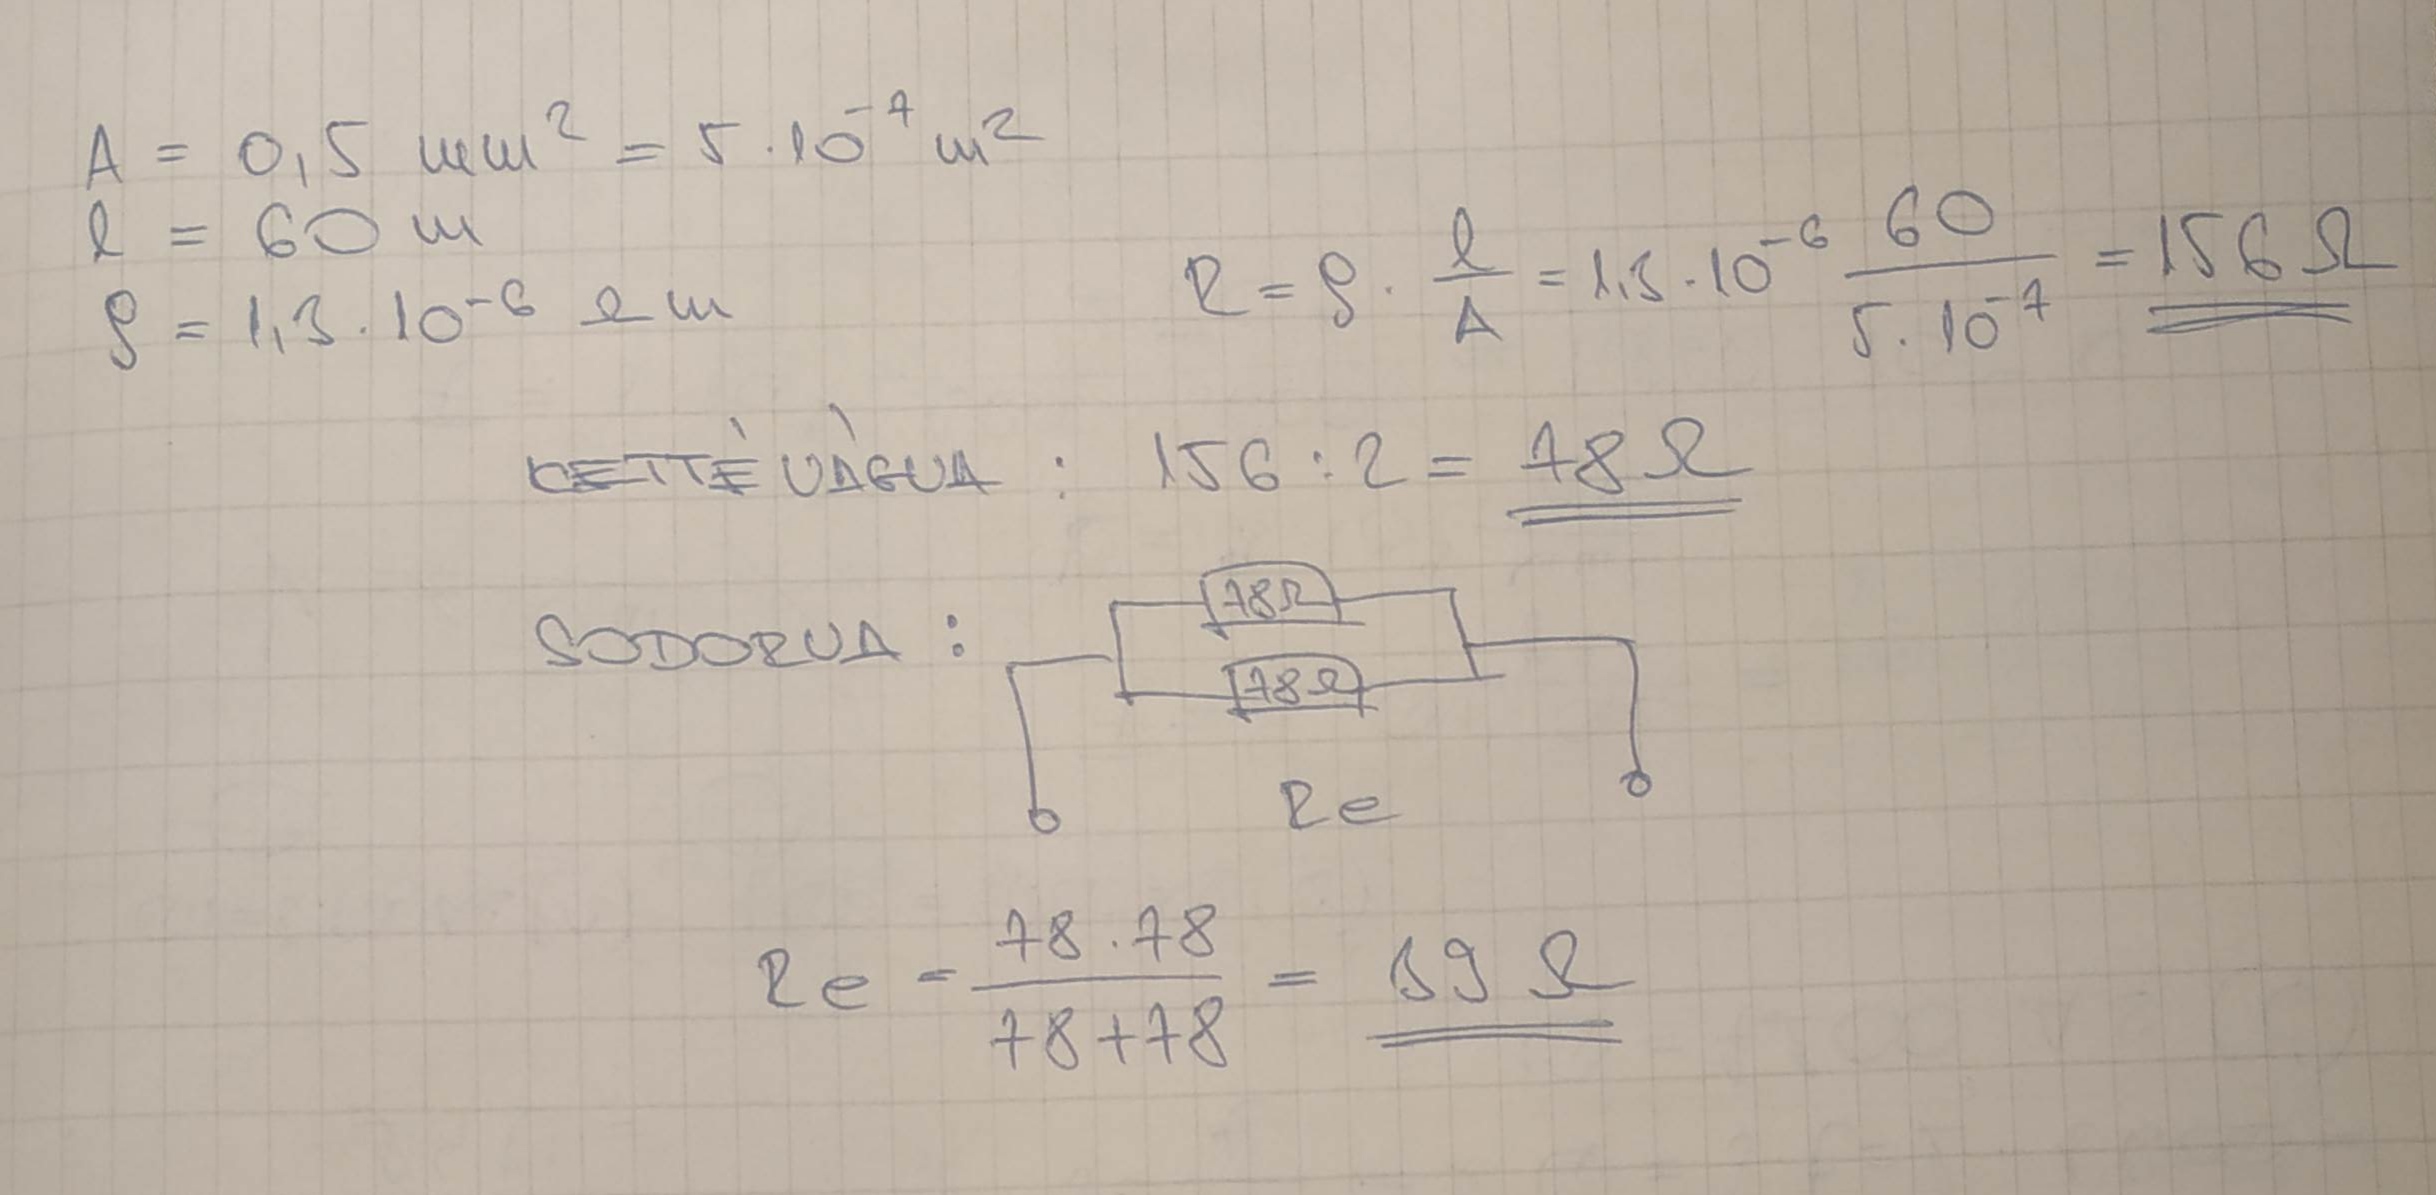 A = 0,5 mm² = 5·10⁻⁷ m²
l = 60 m
ρ = 1,3·10⁻⁶ Ωm
R = ρ · l/A = 1,3·10⁻⁶ 60/5·10⁻⁷ = 156 Ω
KETTÉVÁGVA : 156 : 2 = 78 Ω
SODORVA :
78Ω
78Ω
Re
Re = 78·78/78+78 = 39 Ω